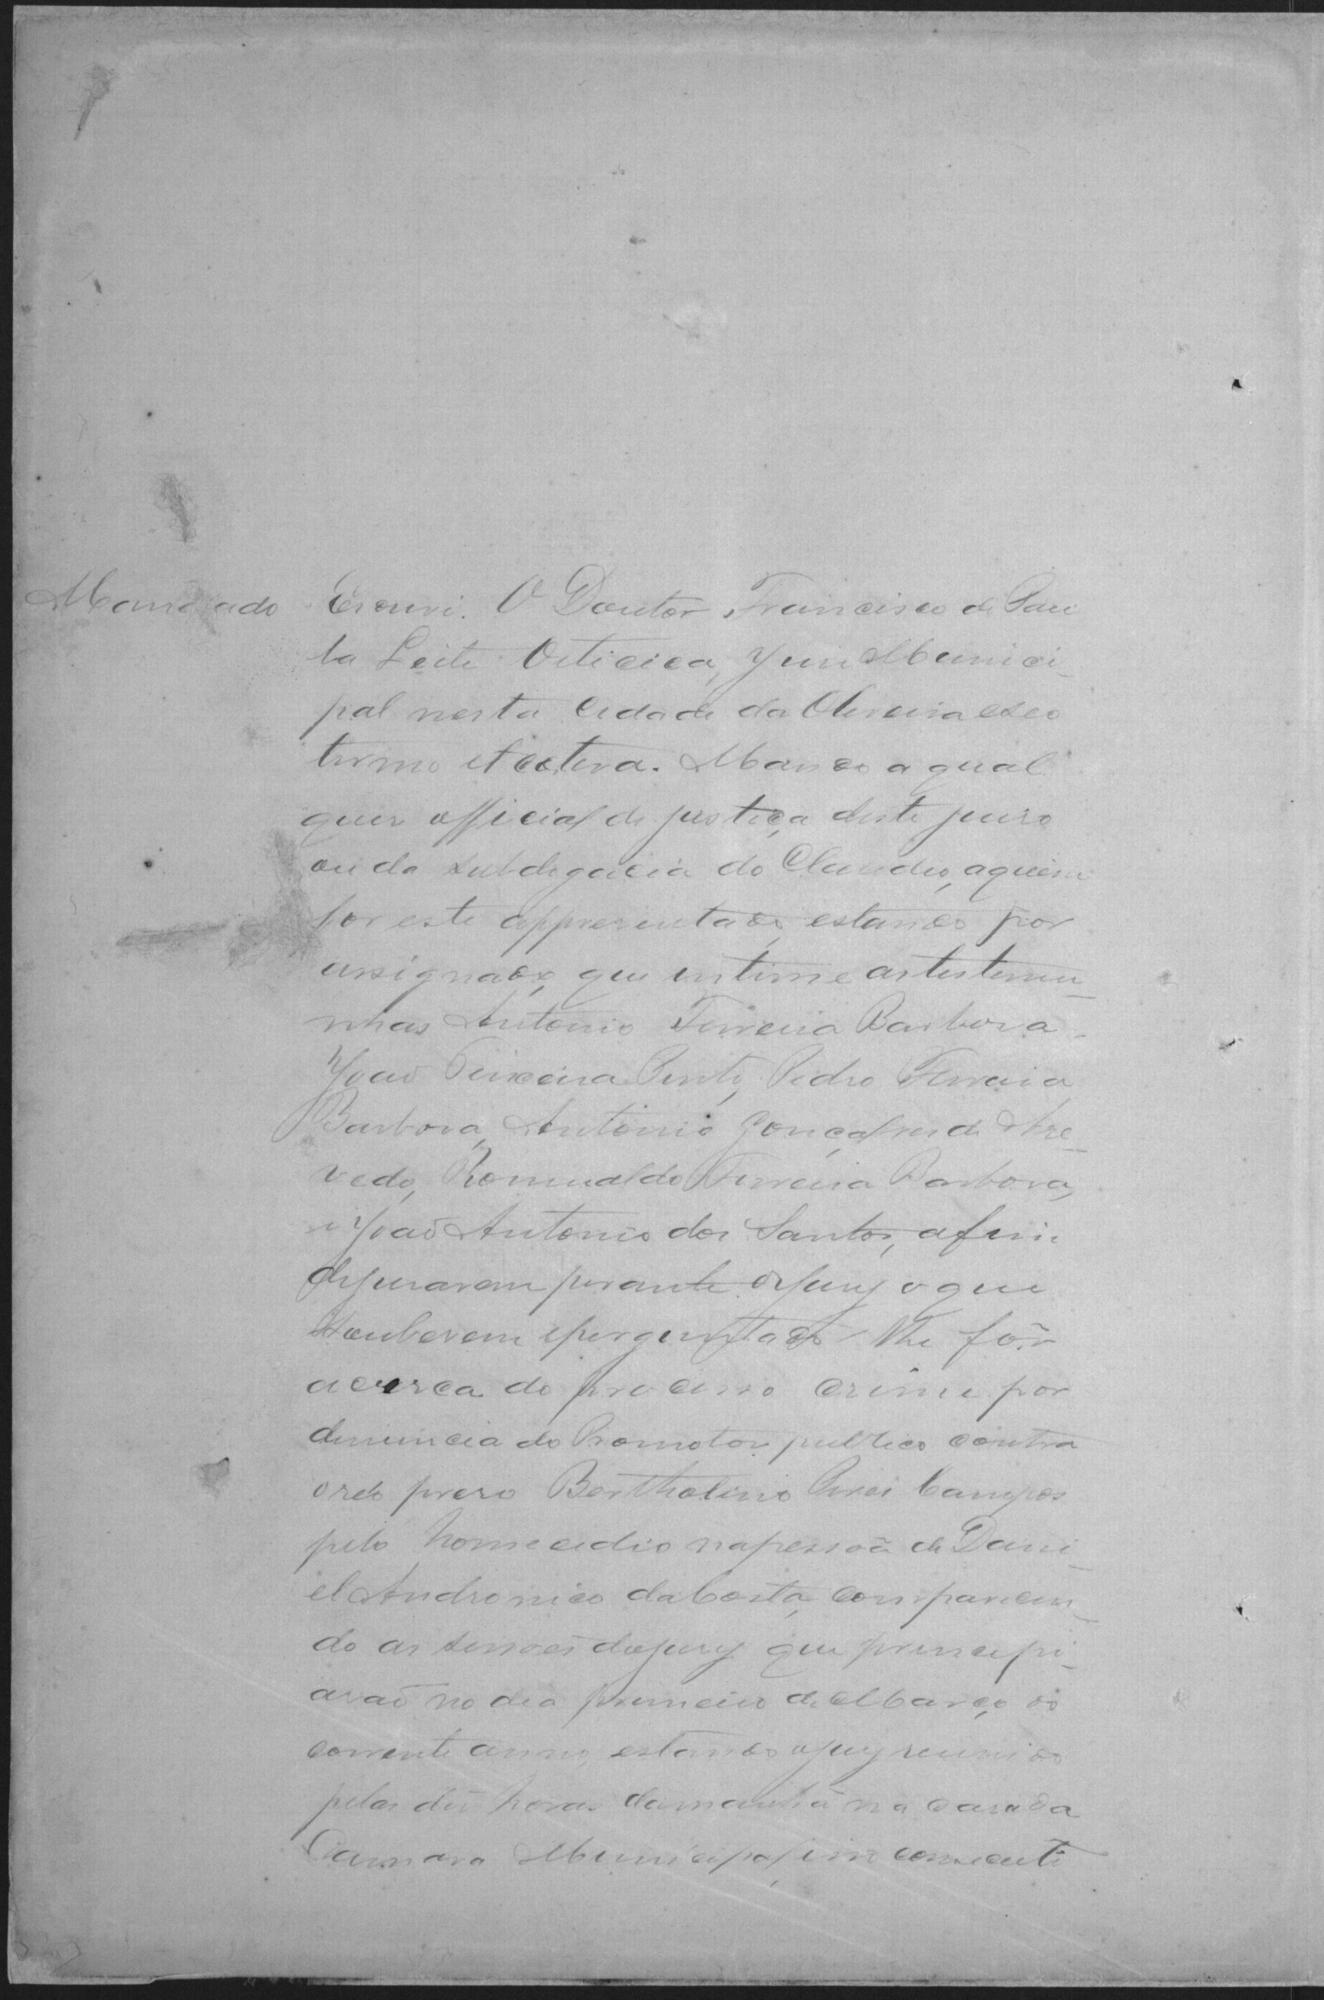 Mandado Escrivi. O Doutor Francisco de Pau
la Leite Oiticica, Juis Munici_
pal nesta Cidade da Oliveira e seo
termo et cetera. Mando a qual
quer official de justiça deste juizo
ou da subdegacia do Claudio, aquem
for este appresentado, estando por
assignado, que intime as testemu_
nhas Antonio Ferreira Barbosa_
João Teixeira Pinto, Pedro Ferreira
Barbosa, Antonio Gonçalves de Aze_
vedo, Romualdo Ferreira Barbosa,
e João Antonio dos Santos, afim
dejurarem perante ojury o que
souberem eperguntado lhe fôr
acerca do processo crime por
denuncia do Promotor publico contra
oreo prezo Bertholino Pires Campos
pelo homecidio napessoa de Dani_
el Andronico daCosta, comparecen_
do as sessoes dojury que principi_
arao no dia primeiro de Março do
corrente anno, estando ojury reunido
pelas dés horas damanhã na casa da
Camara Municipal, em consecuti